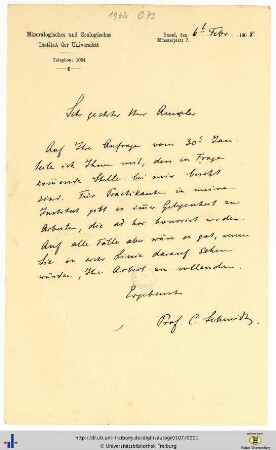 Mineralogisches und Geologisches
Institut der Universität
Telephon: 1094
Basel, den 6t Febr. 1908
Münsterplatz 7.
Sehr geehrter Herr
Auf Ihre Anfrage vom 30t Jan
teile ich Ihnen mit, dass in Frage
kommende Stelle bei mir besetzt
sind. Für Praktikanten in meinem
Institut gibt es immer Gelegenheit zu
Arbeiten, die ad hoc honoriert werden.
Auf alle Fälle aber wäre es gut, wenn
Sie in erster Linie darauf sehen
würden, Ihre Arbeit zu vollenden.
Ergebenst
Prof. C. Schmidt
© Universitätsbibliothek Freiburg